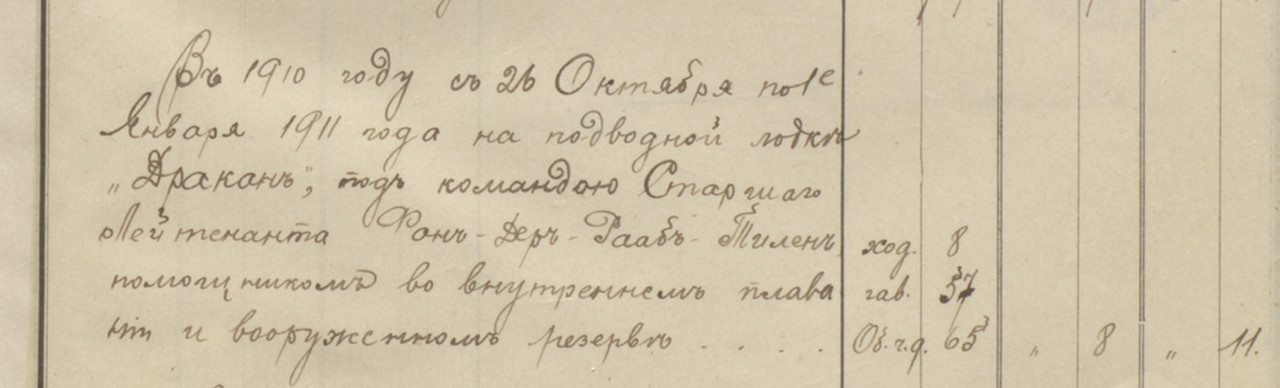 Въ 1910 году съ 26 Октября по 1е
Января 1911 года на подводной лодкѣ
„Драконъ", подъ командою Старшаго
Лейтенанта Фонъ-Деръ-Раабъ-Тиленъ, ход. 8
помощникомъ во внутреннемъ плава гав. 57
нiи и вооруженномъ резервѣ . . . . Об.ч.д. 65 „ 8 „ 11.